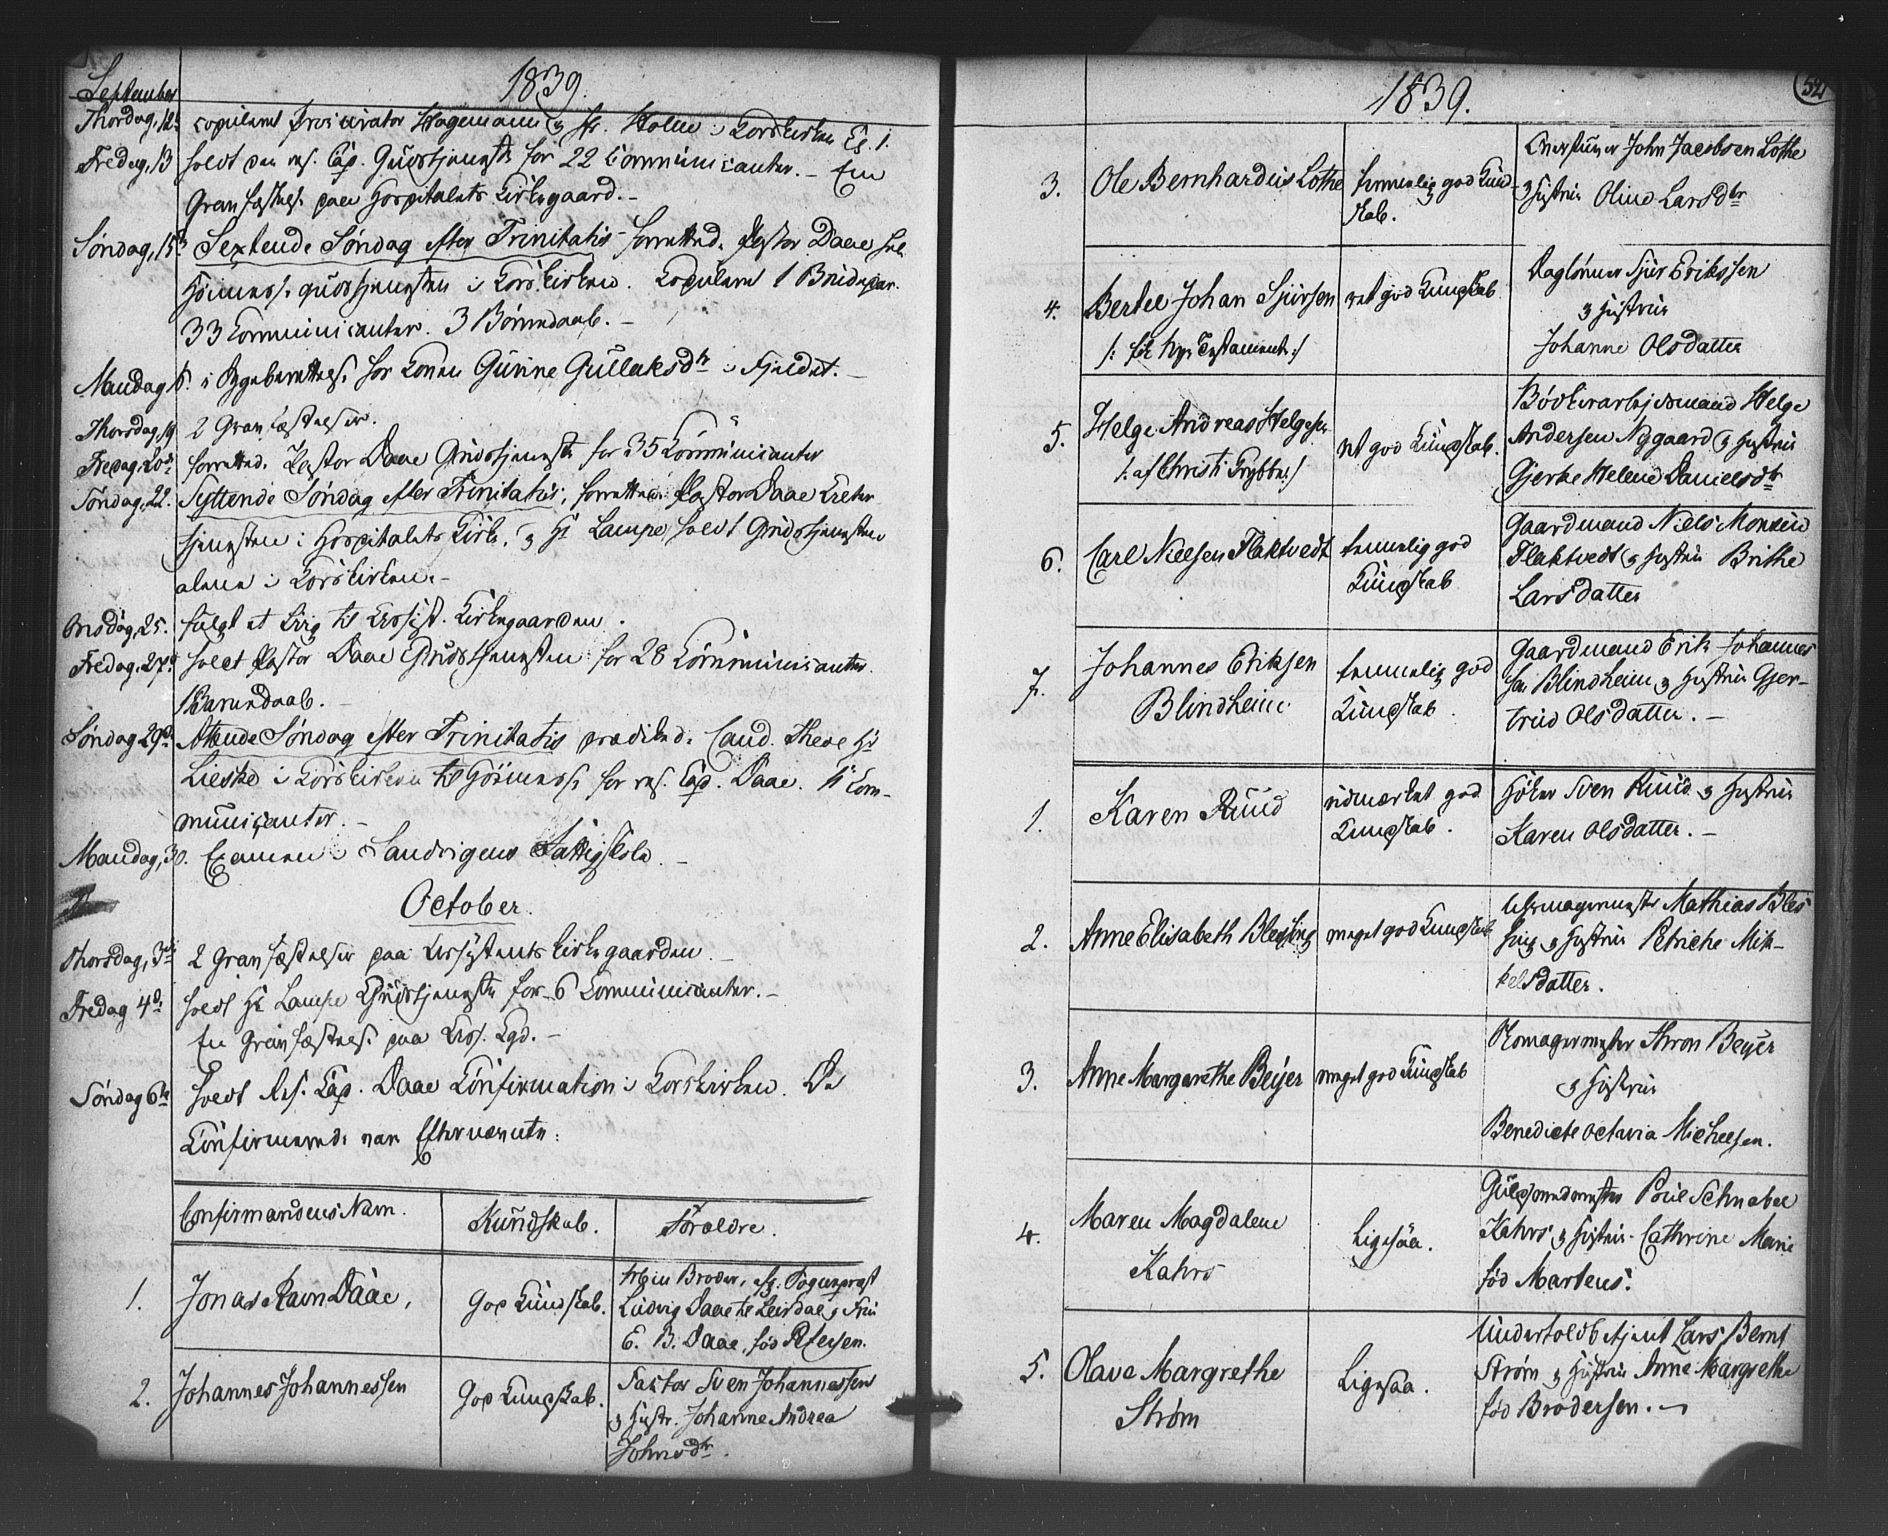 September
1839.
Thorsdag, 12. copuleret Procurator Hagemann & Fr. Holm i Korskirken Cl. 1.
Fredag, 13 holdt paa res. Cap. Gudstjeneste for 22 Communicanter. – En
Gravfæstelse paa Hospitalets Kirkegaard. –
Søndag, 15. Sextende Søndag efter Trinitatis forrettede Pastor Daae hele
Høimesse gudstjenesten i Korskirken. Copuleret 1 Brudepar.
33 Communicanter. 3 Børnedaab. –
Mandag, 16. i Sygeberettelse for Konen Gunne Gullaksdtr i Fjeldet. –
Thorsdag, 19 2 Gravfæstelser.
Fredag, 20de forrettede Pastor Daae Gudstjeneste for 35 Communicanter
Søndag, 22. Syttende Søndag efter Trinitatis, forrettede Pastor Daae
tjenesten i Hospitalets Kirke, & Hr Lampe holdt Gudstjenesten
alene i Korskirken. –
Onsdag, 25. fulgt et Liig til Assist. Kirkegaarden.
Fredag, 27. holdt Pastor Daae Gudstjenesten for 28 Communicanter.
1 Barnedaab. –
Søndag 29de Attende Søndag efter Trinitatis prædikede Cand. Theol Hr
Lieske i Korskirken til Høimesse for res. Cap. Daae. 11 Com-
municanter. –
Mandag, 30. Examen i Sandvigens Fattigskole. –
October.
Thorsdag, 3die 2 Gravfæstelser paa Assistents Kirkegaarden. –
Fredag 4de holdt Hr Lampe Gudstjeneste for 6 Communicanter. –
En Gravfæstelse paa Ass. Kgd. –
Søndag 6te holdt Res. Cap. Daae Confirmation i Korskirken. De
Confirmerede vare Efternævnte:
Confirmandens Navn. Kundskab. Forældre.
1. Jonas Ravn Daae, God Kundskab. Broder, afg. Sogneprest
Ludvig Daae til Leirdal & Fru
E. B. Daae, fød Petersen.
2. Johannes Johannessen God Kundskab. Factor Sven Johannessen
& Hustr. Johanne Andrea
Johnsdtr.
52
1839.
3. Ole Bernhardus Lothe temmelig god Kund-
skab. John Jacobsen Lothe
& Hustru Oline Larsdtr
4. Bertel Johan Sjursen ret god Kundskab Daglønner Sjur Erikssen
& Hustru
/: fik Nye Testament :/ Johanne Olsdatter
5. Helge Andreas Helgesen ret god Kundskab. Bødkerarbejdsmand Helge
Andersen Nygaard & Hustru
Gjerke Helene Danielsdtr
6. Carl Nielsen Flaktvedt temmelig god
Kundskab Gaardmand Niels Monsen
Flaktvedt & Hustru Brithe
Larsdatter
7. Johannes Eriksen
Blindheim temmelig god
Kundskab. Gaardmand Erik Johannes
sen Blindheim & Hustru Gjer-
trud Olsdatter. –
1. Karen Ruud udmærket god
Kundskab. Høker Sven Ruud & Hustru
Karen Olsdatter. –
2. Anne Elisabeth Blessing meget god Kundskab Uhrmagermester Mathias Bles
sing & Hustru Petriche Mik-
kelsdatter.
3. Anne Margarethe Beyer meget god Kundskab Skomagermester Thron Beyer
& Hustru
Benedicte Octavia Michelsen.
4. Maren Magdalene
Kahrs Ligesaa. Guldsmedmester Poul Schnabel
Kahrs & Hustru Cathrine Marie
fød Martens.
5. Olava Margrethe
Strøm Ligesaa. Undertoldbetjent Lars Bernt
Strøm & Hustru Anne Margrethe
fød Brodersen. –